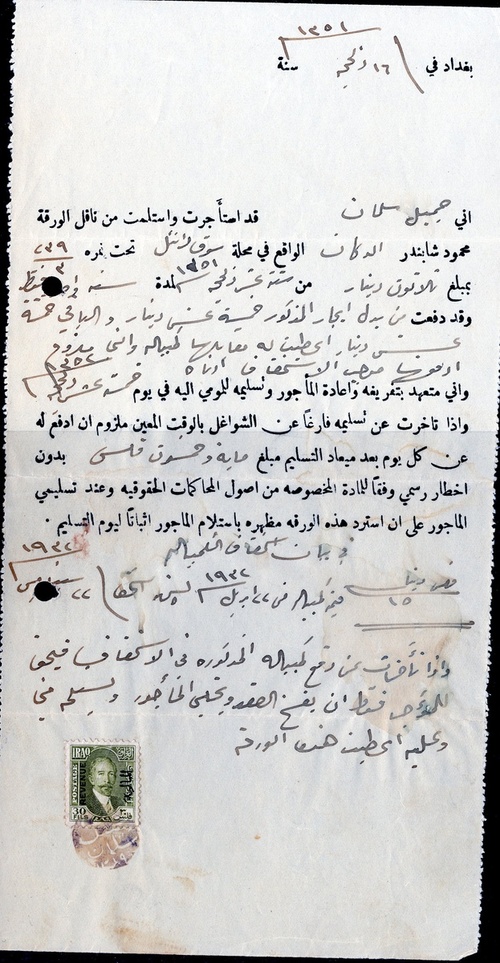 ١٣٥١
بغداد في ١٦ ذي الحجة سنة
اني جميل سلمان قد استأجرت واستلمت من ناقل الورقة
محمود شابندر الدكان الواقع في محلة سوق تحت نمره ٢٣٩
بمبلغ ثلاثون دينار من ستة عشر ذي الحجة ١٣٥١ لمدة سنة فقط
وقد دفعت من بدل ايجار المذكور خمسة عشر دينار والباقي خمسة
عشر دينار اعطيت له مقابلها كمبياله واني
ادفعها الاستحقاق ادناه ١٣٥٢
واني متعهد بتفريغه واعادة المأجور وتسليمه للمومى اليه في يوم خمسة عشر ذي الحجة
واذا تاخرت عن تسليمه فارغاً عن الشواغل بالوقت المعين ملزوم ان ادفع له
عن كل يوم بعد ميعاد التسليم مبلغ ماية وخمسون فلس بدون
اخطار رسمي وفقاً للمادة المخصوصه من اصول المحاكمات الحقوقيه وعند تسليمي
الماجور على ان استرد هذه الورقه مظهره باستلام الماجور اثباتاً ليوم التسليم ٠
في بيان استحقاق الكمبياله
دينار ١٥ كمبياله في ٢٢ ابريل ١٩٣٢ ٢٢
واذا تأخرت عن دفع كمبياله المذكوره في الاستحقاق فيحق
للمؤجر فقط ان يفسخ العقد ويتخلى المأجور ويستلم مني
وعليه اعطيت هذه الورقه
IRAQ
POSTAGE
REVENUE
30
FILS
٣٠